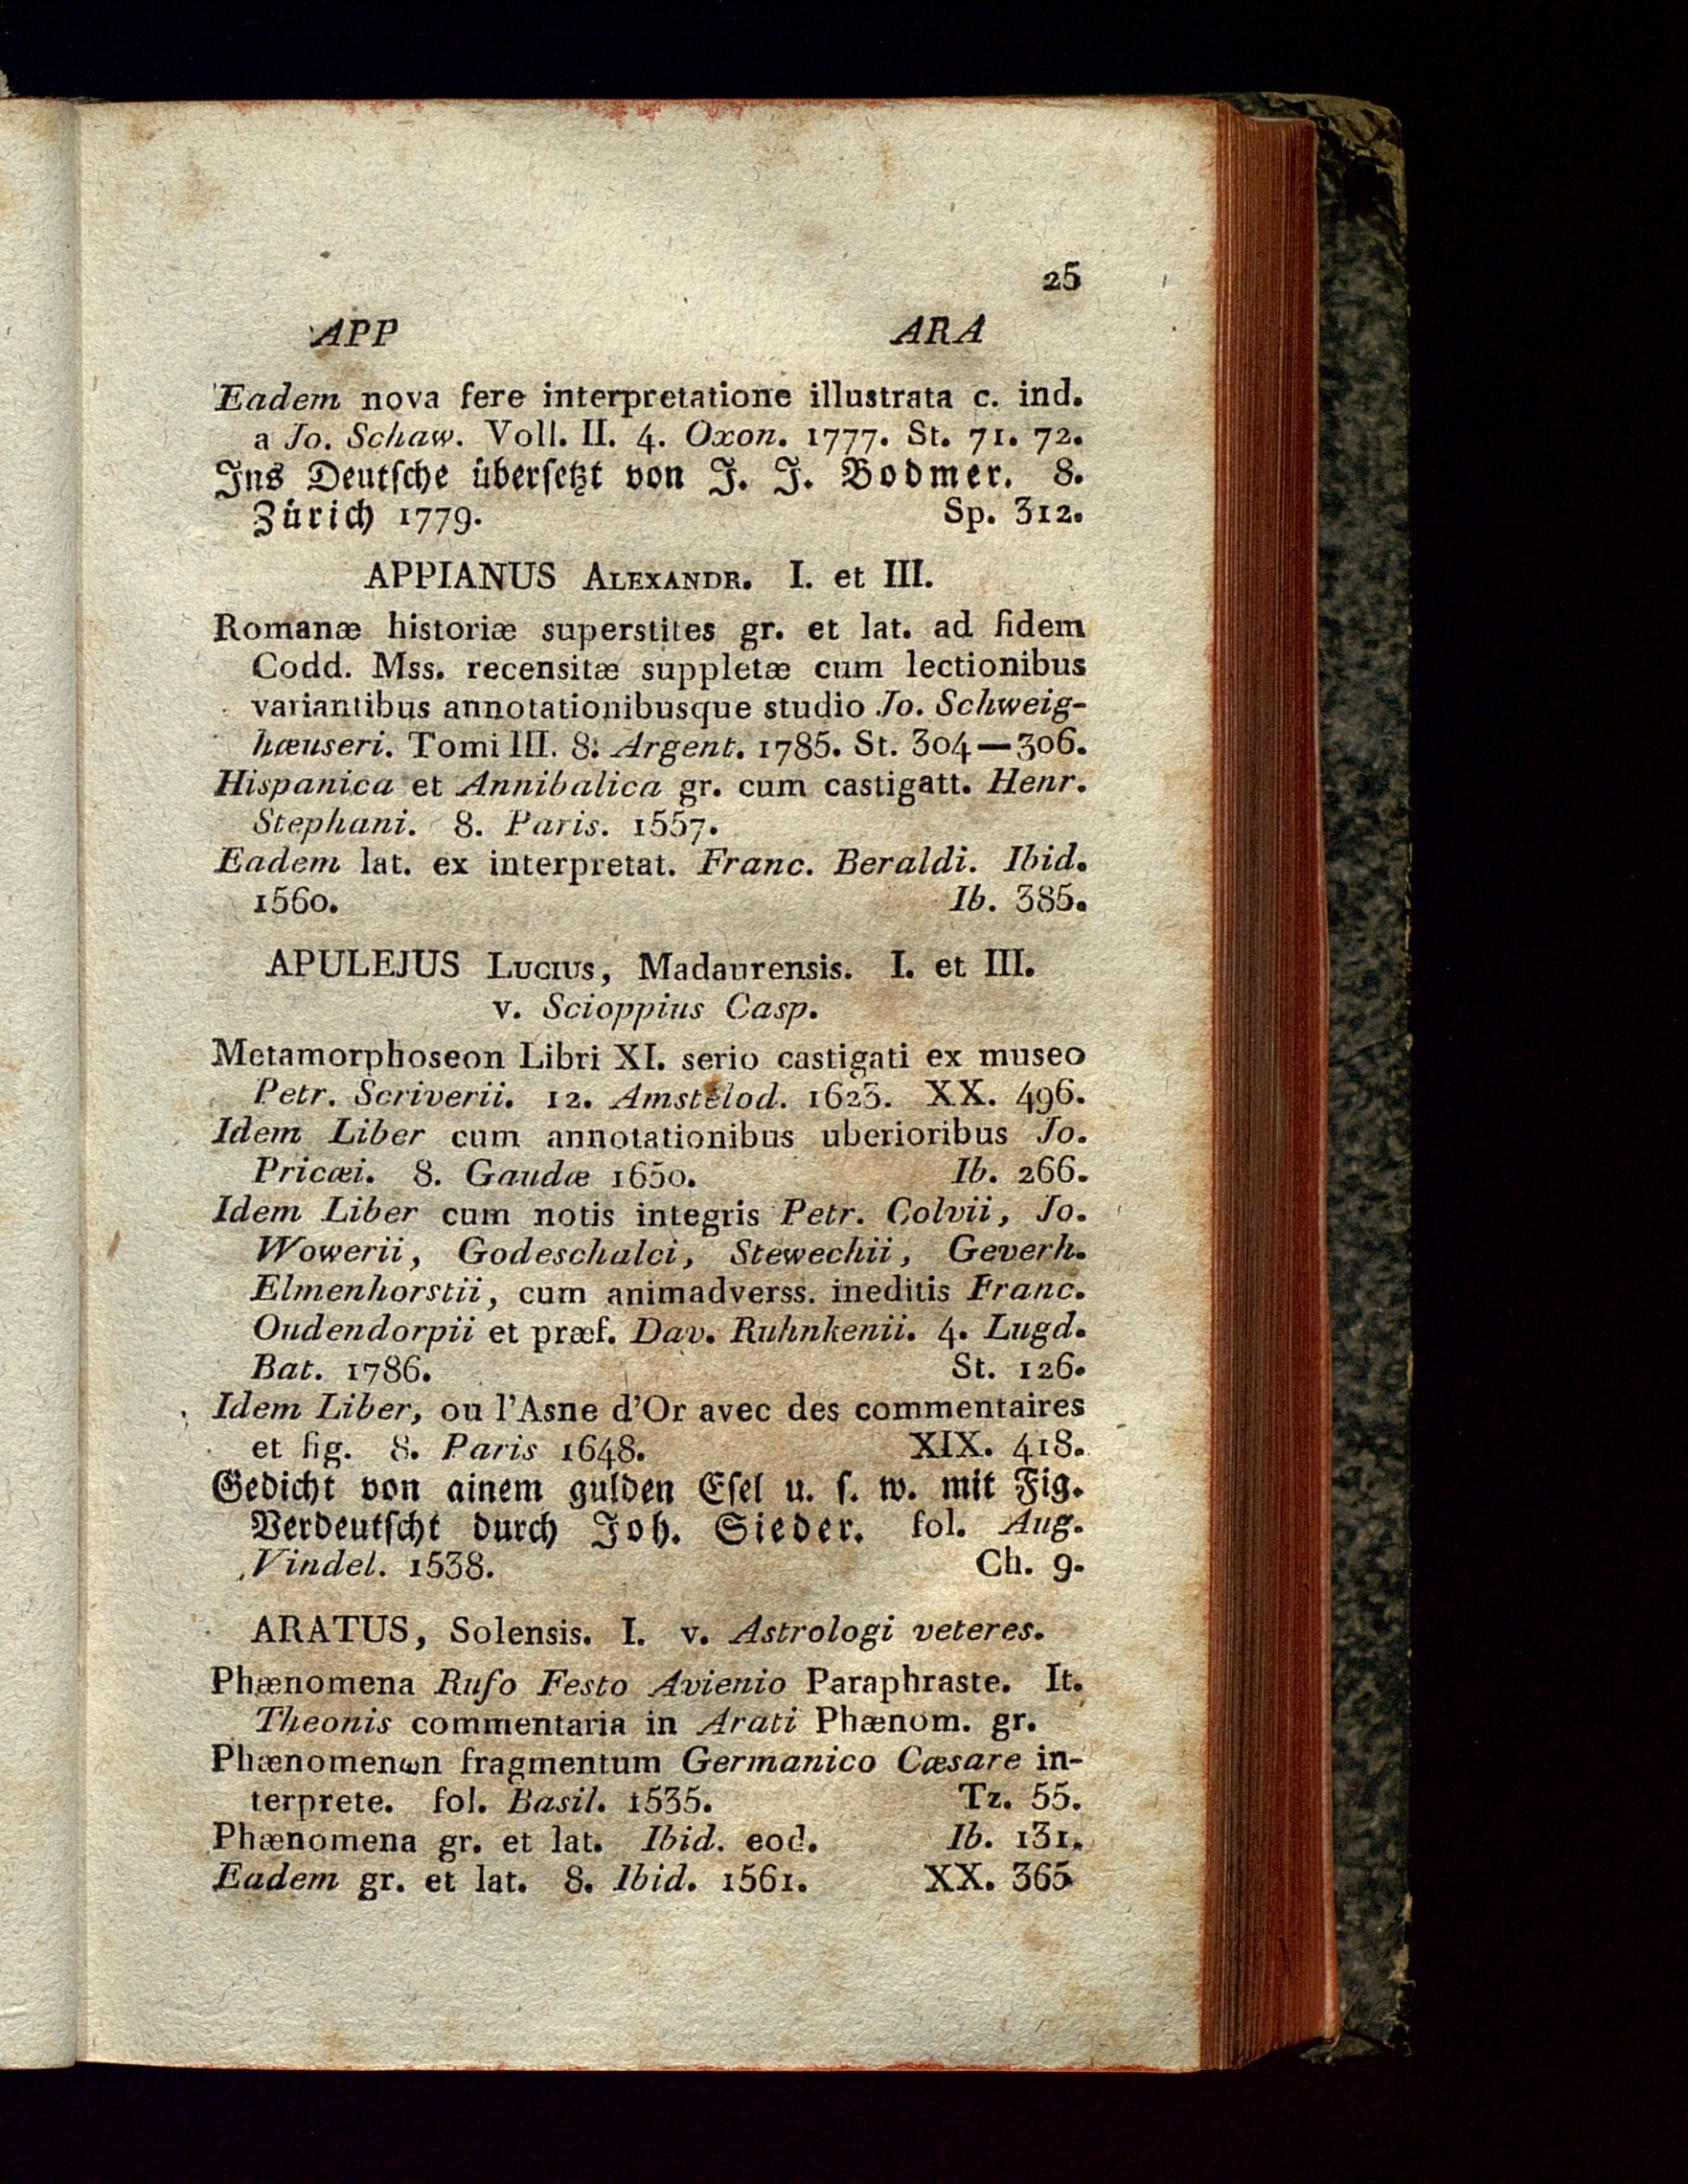 25
APP ARA
Eadem nova fere interpretatione illustrata c. ind.
a Jo. Schaw. Voll. II. 4. Oxon. 1777. St. 71. 72.
Ins Deutſche überſetzt von J. J. Bodmer. 8.
Zürich 1779. Sp. 312.
APPIANUS ALEXANDR. I. et III.
Romanæ historiæ superstites gr. et lat. ad fidem
Codd. Mss. recensitæ suppletæ cum lectionibus
variantibus annotationibusque studio Jo. Schweig-
hæuseri. Tomi III. 8. Argent. 1785. St. 304—306.
Hispanica et Annibalica gr. cum castigatt. Henr.
Stephani. 8. Paris. 1557.
Eadem lat. ex interpretat. Franc. Beraldi. Ibid.
1560. Ib. 385.
APULEJUS LUCIUS, Madaurensis. I. et III.
v. Scioppius Casp.
Metamorphoseon Libri XI. serio castigati ex museo
Petr. Scriverii. 12. Amstelod. 1623. XX. 496.
Idem Liber cum annotationibus uberioribus Jo.
Pricæi. 8. Gaudæ 1650. Ib. 266.
Idem Liber cum notis integris Petr. Colvii, Jo.
Wowerii, Godeschalci, Stewechii, Geverh.
Elmenhorstii, cum animadverss. ineditis Franc.
Oudendorpii et præf. Dav. Ruhnkenii. 4. Lugd.
Bat. 1786. St. 126.
Idem Liber, ou l'Asne d'Or avec des commentaires
et fig. 8. Paris 1648. XIX. 418.
Gedicht von ainem gulden Eſel u. ſ. w. mit Fig.
Verdeutſcht durch Joh. Sieder. fol. Aug.
Vindel. 1538. Ch. 9.
ARATUS, Solensis. I. v. Astrologi veteres.
Phænomena Rufo Festo Avienio Paraphraste. It.
Theonis commentaria in Arati Phænom. gr.
Phænomenωn fragmentum Germanico Cæsare in-
terprete. fol. Basil. 1535. Tz. 55.
Phænomena gr. et lat. Ibid. eod. Ib. 131.
Eadem gr. et lat. 8. Ibid. 1561. XX. 365